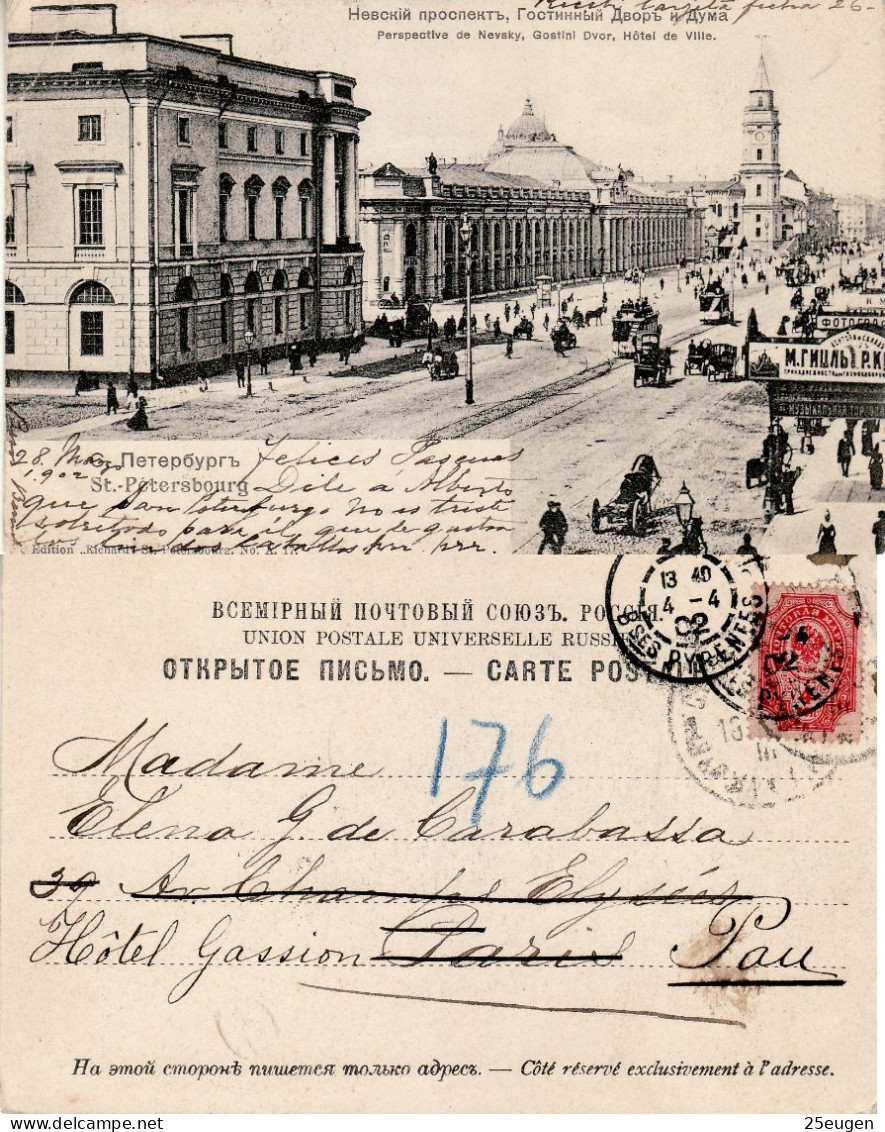 Recibí tarjeta fecha 26-
Невскій проспектъ, Гостинный Дворъ и Дума
Perspective de Nevsky, Gostini Dvor, Hôtel de Ville.
ФОТОГРАФ
М.ГИЦЛЬ Р.К
МУЗЫКАЛЬНАЯ
28. Mayo
1902
С. Петербургъ
St.-Pétersbourg
Felices Pascuas
Dile á Alberto
que San Petersburgo no es triste
sobretodo para él que le gustan
los
caballos
Edition „Richard" St. Pétersbourg. No.
ВСЕМІРНЫЙ ПОЧТОВЫЙ СОЮЗЪ. РОССІЯ.
UNION POSTALE UNIVERSELLE RUSSIE
ОТКРЫТОЕ ПИСЬМО. — CARTE POST
13 40
4 - 4
02
BSES PYRENEES
176
Madame
Elena G. de Carabassa
39 Av Champs Elysées
Hôtel Gassion Paris Pau
На этой сторонѣ пишется только адресъ. — Côté réservé exclusivement à l'adresse.
25eugen
DELCAMPE.NET